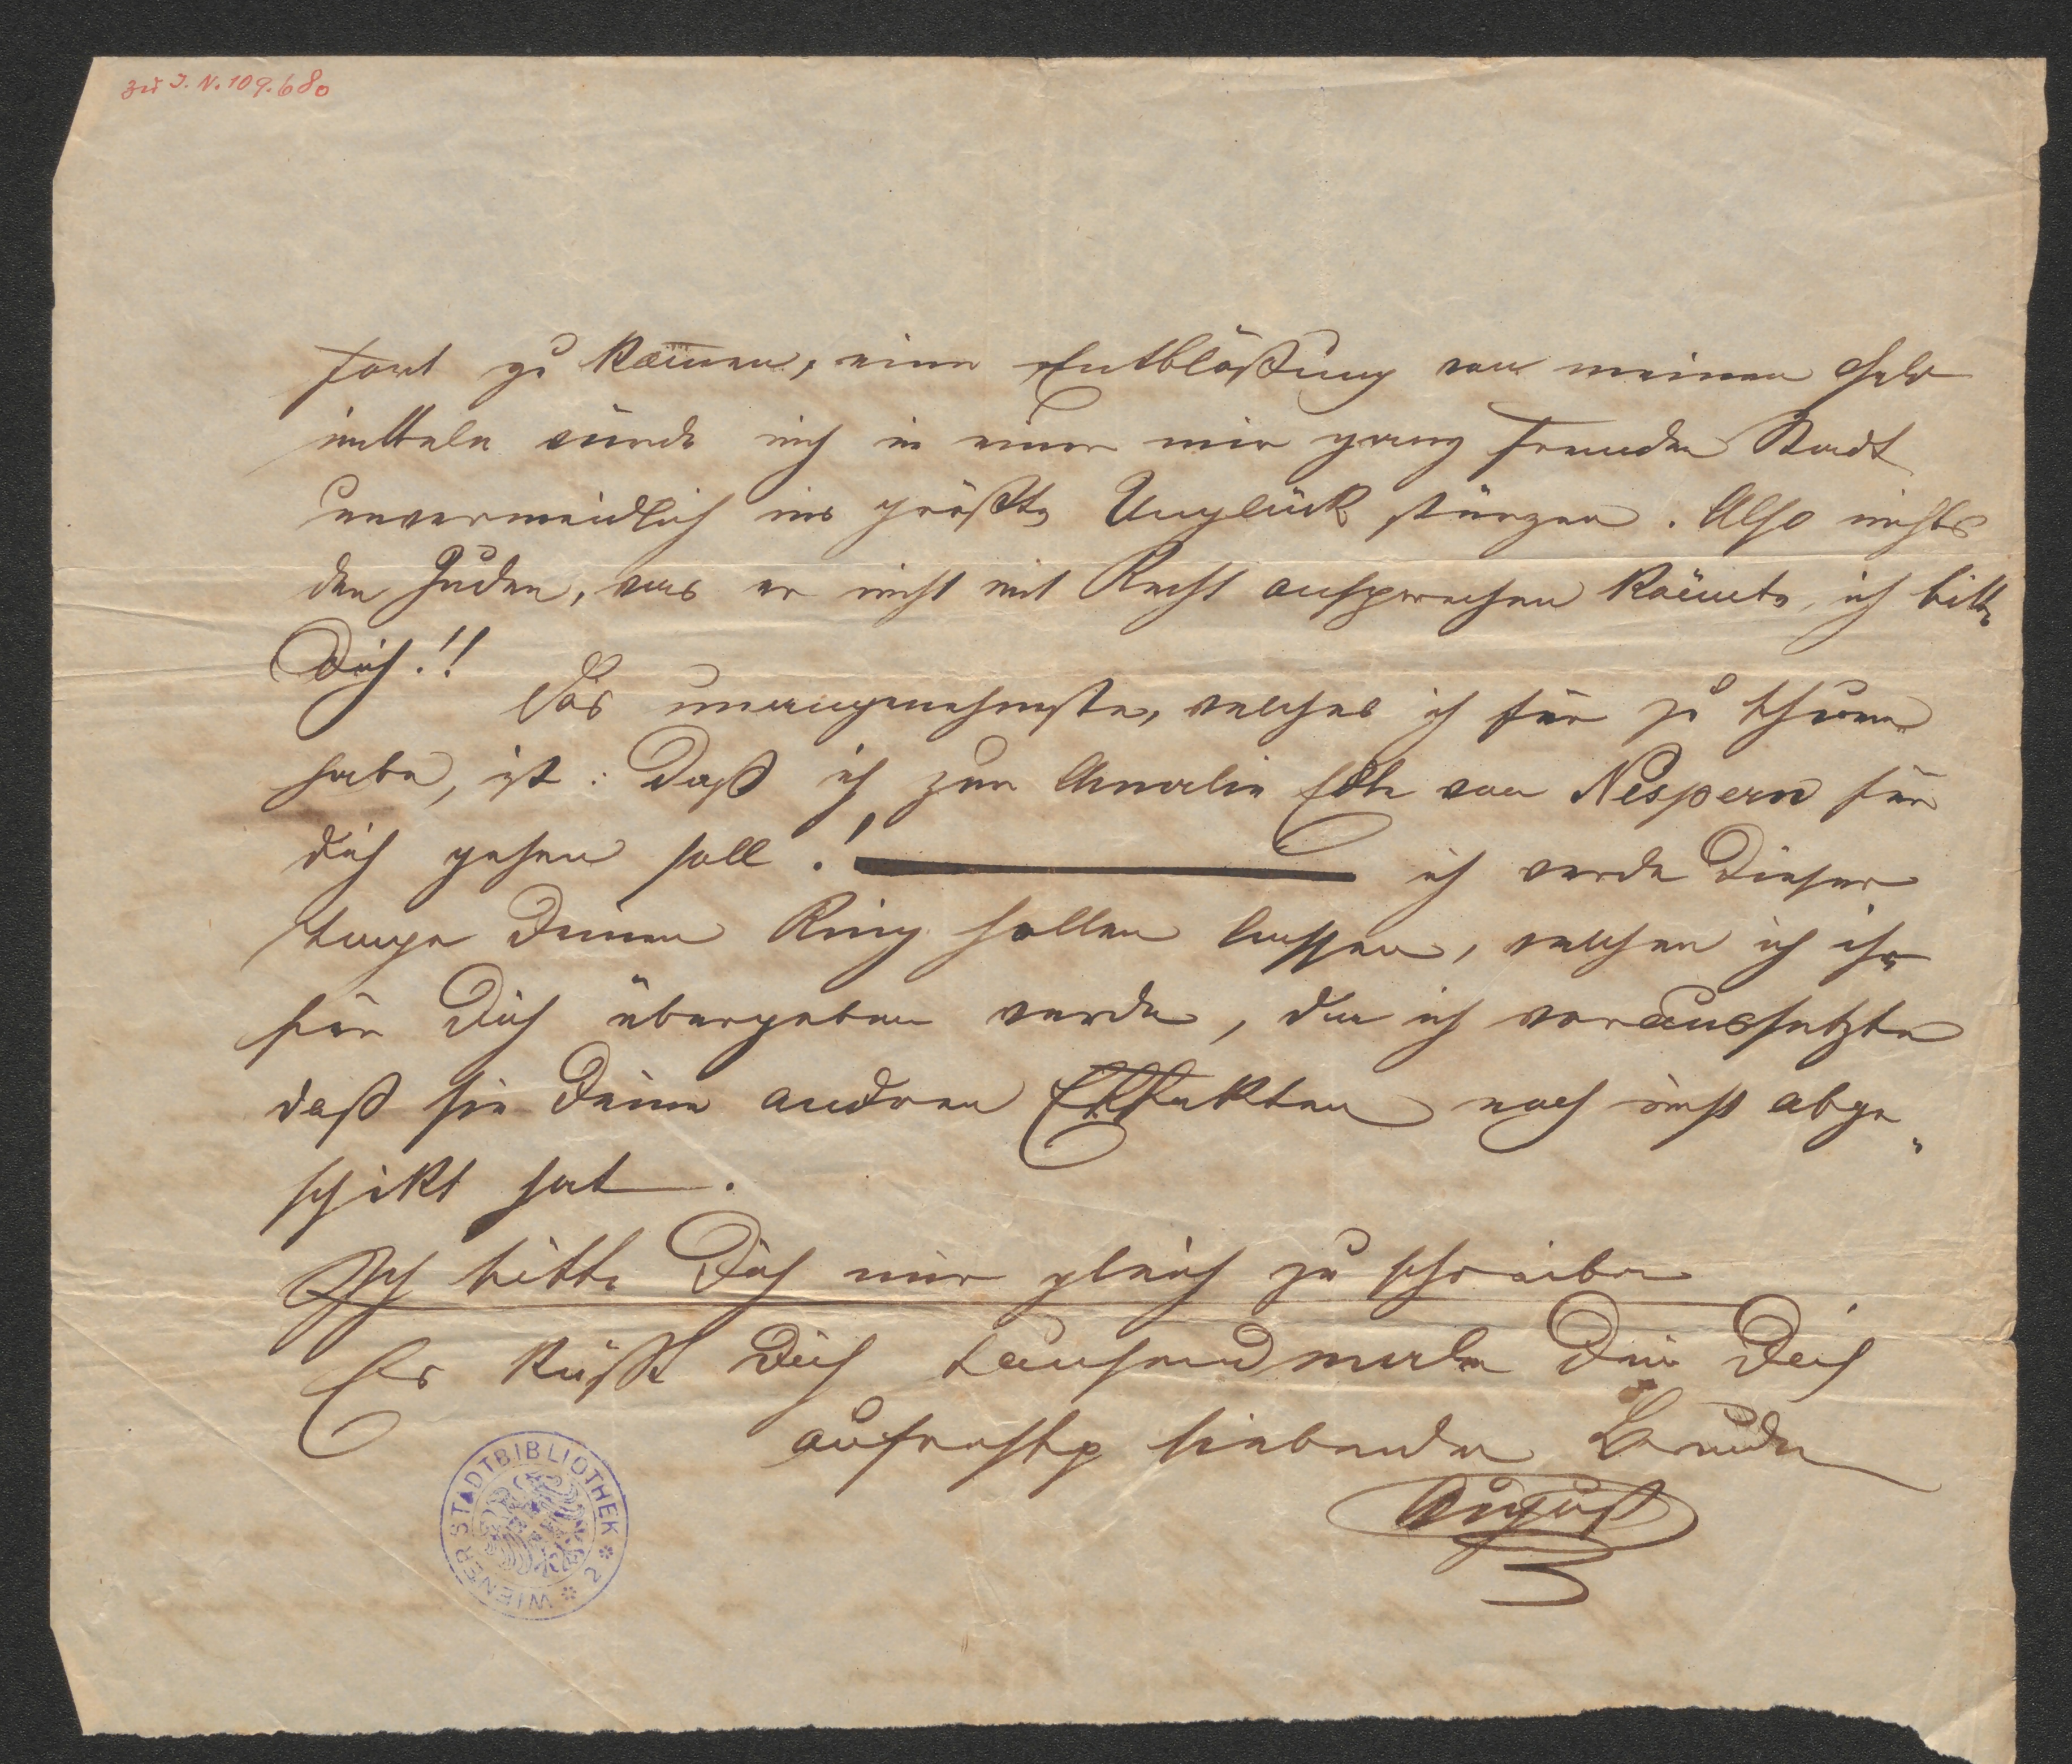 zu I. N. 109.680
fort zu kom̅en, eine Entblößung von meinen Geld
mitteln würde mich in einer mir ganz fremden Stadt
unvermeidlich ins größte Unglück stürzen. Also nichts
den Juden, was er nicht mit Recht ansprechen könnte, ich bitte
Dich!!
Das unangenehmste, welches ich für zu thuen
habe, ist: Daß ich zur Amalie Edle von Nespern für
dich gehen soll! ich werde Dieser
tage Deinen Ring hollen lassen, welchen ich ihr
für Dich übergeben werde, da ich voraussetzte
daß sie Deine andren Effekten noch nicht abge„
schikt hat.
Ich bitte Dich mir gleich zu schreiben
Es küßt Dich tausendmale Dein Dich
aufrichtig liebender Bruder
August
WIENER STADTBIBLIOTHEK * 2 *